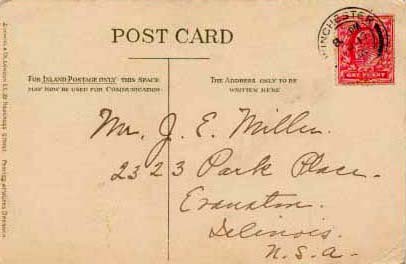 POST CARD
FOR INLAND POSTAGE ONLY THIS SPACE
MAY NOW BE USED FOR COMMUNICATION
THE ADDRESS ONLY TO BE
WRITTEN HERE
WINCHESTER
ONE PENNY
Mr. J. E. Miller.
2323 Park Place.
Evanston
Illinois.
U.S.A.